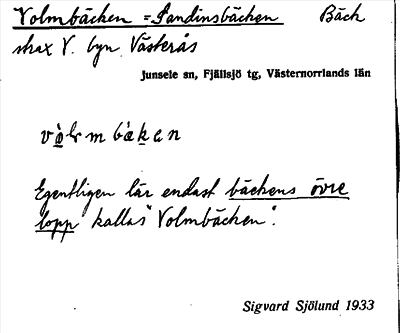 Volmbäcken = Sandinsbäcken Bäck
strax V. byn Västerås
Junsele sn, Fjällsjö tg, Västernorrlands län
Egentligen lär endast bäckens övre
lopp kallas "Volmbäcken".
Sigvard Sjölund 1933